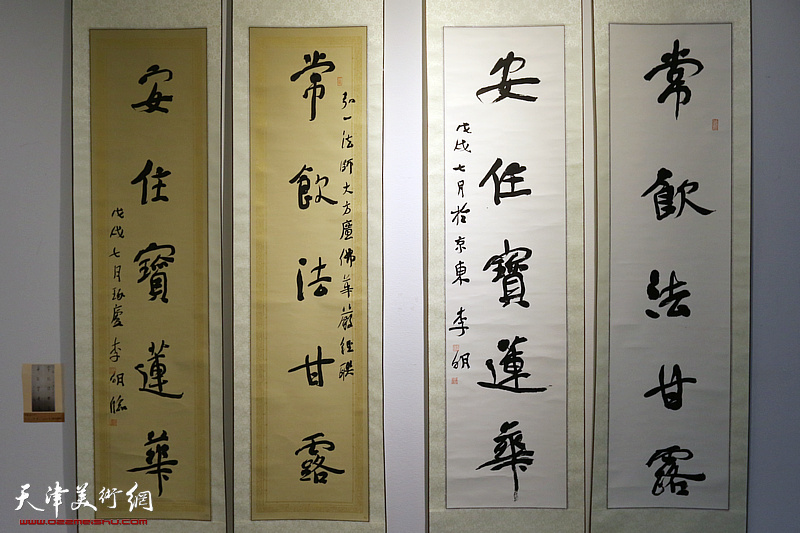 常飲法甘露
安住寶蓮華
戊戌七月於京東 李明
常飲法甘露
弘一法師大方廣佛華嚴經聯
安住寶蓮華
戊戌七月 李明臨
天津美術網